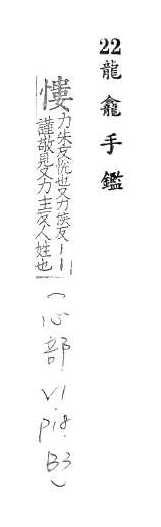 22 龍龕手鑑
慺 力朱反悅也又力侯反丨丨
謹敬皃又力主反人姓也
(心部 V1. P18. B3)